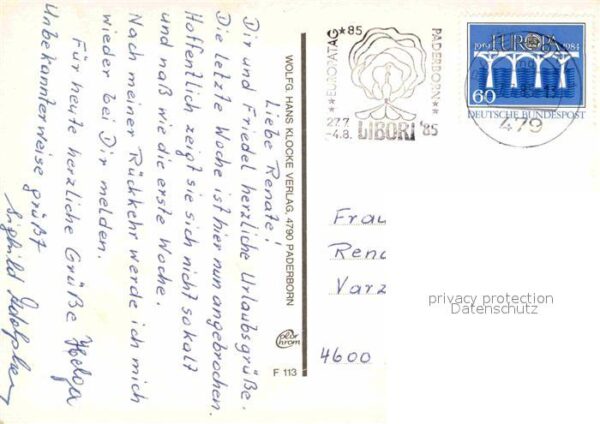 Liebe Renate!
Dir und Friedel herzliche Urlaubsgrüße.
Die letzte Woche ist hier nun angebrochen.
Hoffentlich zeigt sie sich nicht so kalt
und naß wie die erste Woche.
Nach meiner Rückkehr werde ich mich
wieder bei Dir melden.
Für heute herzliche Grüße Helga
Unbekannterweise grüßt
Sighild
WOLFG. HANS KLOCKE VERLAG, 4790 PADERBORN
color chrom
F 113
*EUROPATAG*85 PADERBORN**
27.7.
-4.8. LIBORI '85
1959 EUROPA 1984
60
DEUTSCHE BUNDESPOST
479
Frau
Rena
Varz
4600
privacy protection
Datenschutz